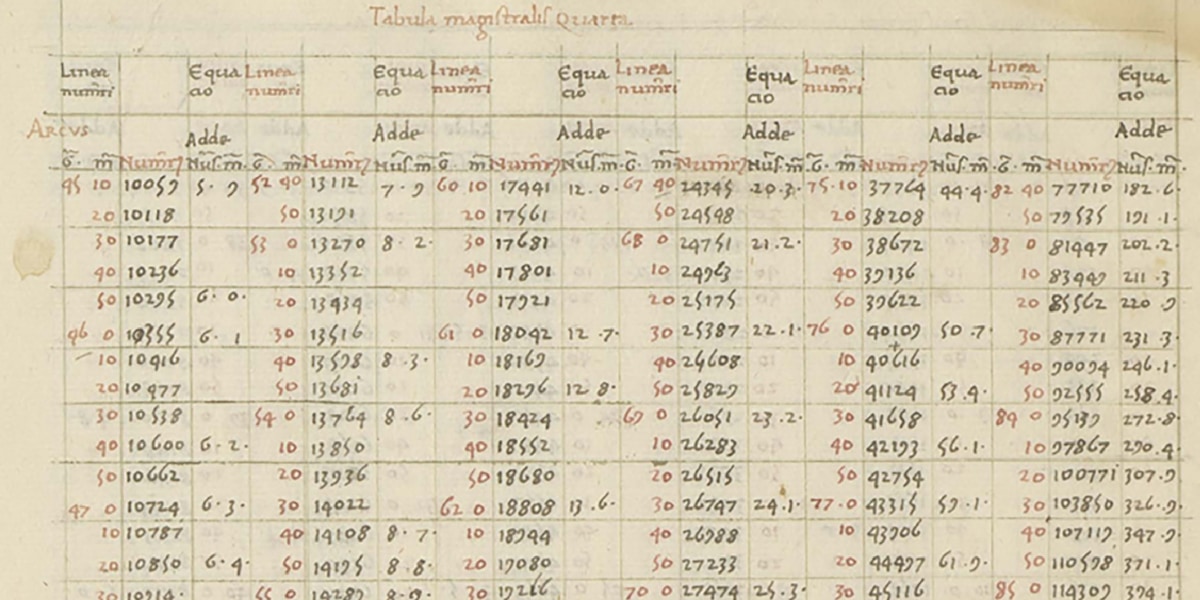 Tabula magistralis Quarta
Linea Equa Linea Equa Linea Equa Linea Equa Linea Equa Linea Equa
num̃ri cio num̃ri cio num̃ri cio num̃ri cio num̃ri cio num̃ri cio
Arcus
Adde Adde Adde Adde Adde Adde
45 10 10059 5 · 9 52 40 13112 7 · 9 60 10 17441 12 · 0 · 67 40 24345 20 · 3 · 75 · 10 37764 44 · 4 · 82 40 77710 182 · 6 ·
20 10118 50 13191 20 17561 50 24548 20 38208 50 79535 191 · 1 ·
30 10177 53 0 13270 8 · 2 · 30 17681 68 0 24751 21 · 2 · 30 38672 83 0 81447 202 · 2 ·
40 10236 10 13352 40 17801 10 24963 40 39136 10 83449 211 · 3
50 10295 6 · 0 · 20 13434 50 17921 20 25175 50 39622 20 85562 220 · 9
46 0 10355 6 · 1 30 13516 61 0 18042 12 · 7 · 30 25387 22 · 1 · 76 0 40109 50 · 7 · 30 87771 231 · 3 ·
10 10416 40 13598 8 · 3 · 10 18169 40 25608 10 40616 40 90094 246 · 1 ·
20 10477 50 13681 20 18296 12 · 8 · 50 25829 20 41124 53 · 4 · 50 92555 258 · 4 ·
30 10538 54 0 13764 8 · 6 · 30 18424 69 0 26051 23 · 2 · 30 41658 84 0 95139 272 · 8 ·
40 10600 6 · 2 · 10 13850 40 18552 10 26283 40 42193 56 · 1 · 10 97867 290 · 4 ·
50 10662 20 13936 50 18680 20 26515 50 42754 20 100771 307 · 9
47 0 10724 6 · 3 · 30 14022 62 0 18808 13 · 6 · 30 26747 24 · 1 · 77 · 0 43315 59 · 1 · 30 103850 326 · 9 ·
10 10787 40 14108 8 · 7 · 10 18944 40 26988 10 43906 40 107119 347 · 9 ·
20 10850 6 · 4 · 50 14195 8 · 8 · 20 19080 50 27233 20 44497 61 · 9 · 50 110598 371 · 1 ·
30 10914 · 55 0 14282 8 · 9 · 30 19216 70 0 27474 25 · 3 · 30 45116 85 0 114309 394 · 1 ·